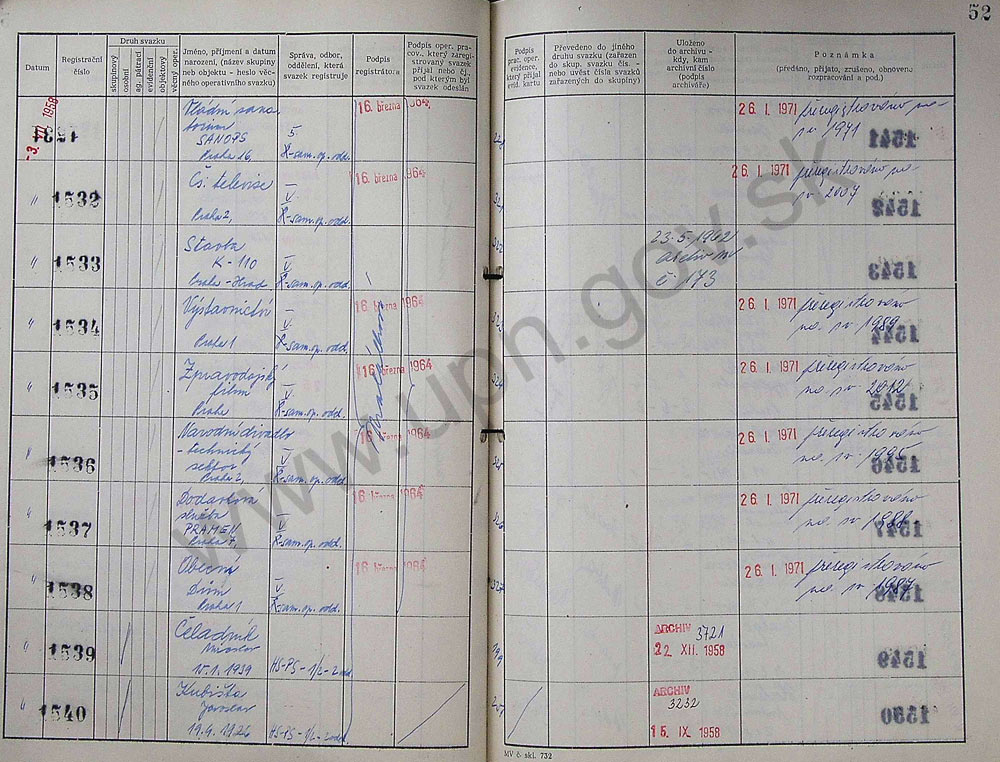 52
Datum
Registrační
číslo
Druh svazku
skupinový
osobní
ag. pátrací
evidenční
objektový
věcný oper.
Jméno, příjmení a datum
narození, (název skupiny
neb objektu - heslo věc-
ného operativního svazku)
Správa, odbor,
oddělení, která
svazek registruje
Podpis
registrátora
Podpis oper. prac-
cov., který zaregi-
strovaný svazek
přijal nebo čj.,
pod kterým byl
svazek odeslán
Podpis
prac. oper.
evidence,
který přijal
evid. kartu
Převedeno do jiného
druhu svazku (zařazen
do skup. svazku čís. -
nebo uvést čísla svazků
zařazených do skupiny)
Uloženo
do archivu -
kdy, kam
archivní číslo
(podpis
archiváře)
Poznámka
(předáno, přijato, zrušeno, obnoveno
rozpracování a pod.)
-3. III 1958
1531
Vládní sana-
torium
SANOPS
Praha 16,
5.
K-sam. op. odd.
16. března 1964,
26. I. 1971
přeregistrováno na
sv 1971
1541
1532
Čs. televise
Praha 2,
V
K-sam. op. odd.
16. března 1964
26. I. 1971
přeregistrováno na
sv 2007
1542
1533
Stavba
K-110
Praha-Hrad
V
K-sam. op. odd.
23.5.1962
archiv MV
č. 173
1543
1534
Výstavnictví
Praha 1
V
K-sam. op. odd.
16. března 1964
26. I. 1971
přeregistrováno
na sv 1989
1544
1535
Zpravodajský
film
Praha
V
K-sam. op. odd.
16. března 1964
26. I. 1971
přeregistrováno
na sv 2012
1545
1536
Národní divadlo
- technický
sektor
Praha 2,
V
K-sam. op. odd.
16. března 1964
26. I. 1971
přeregistrováno
na sv 1995
1546
1537
Dodávková
služba
PRAMEN
Praha 7,
V
K-sam. op. odd.
16. března 1964
26. I. 1971
přeregistrováno
na sv 1988
1547
1538
Obecní
Dům
Praha 1
V
K-sam. op. odd.
16. března 1964
26. I. 1971
přeregistrováno
na sv 1987
1548
1539
Čeladník
Miroslav
15.1.1939
HS-PS-1/2-2 odd.
ARCHIV 3721
22 XII. 1958
1549
1540
Kubišta
Jaroslav
19.4.1926
HS-PS-1/2-2 odd.
ARCHIV
3232
15. IX 1958
1550
MV č. skl. 732
www.upn.gov.sk